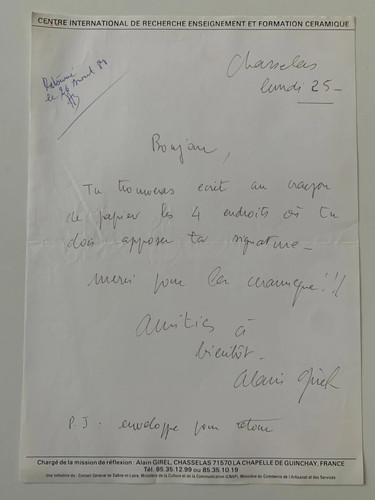 CENTRE INTERNATIONAL DE RECHERCHE ENSEIGNEMENT ET FORMATION CERAMIQUE
Retourné
le 26 avril 89
Chasselas
lundi 25-
Bonjour,
Tu trouveras écrit au crayon
de papier les 4 endroits où tu
dois apposer ta signature-
merci pour la céramique!!!
Amitiés à
bientôt-
Alain Girel
P.J: enveloppe pour retour
Chargé de la mission de réflexion: Alain GIREL, CHASSELAS 71570 LA CHAPELLE DE GUINCHAY, FRANCE
Tél. 85.35.12.99 ou 85.35.10.19
Une initiative du: Conseil Général de Saône-et-Loire, Ministère de la Culture et de la Communication (CNAP), Ministère du Commerce de l'Artisanat et des Services